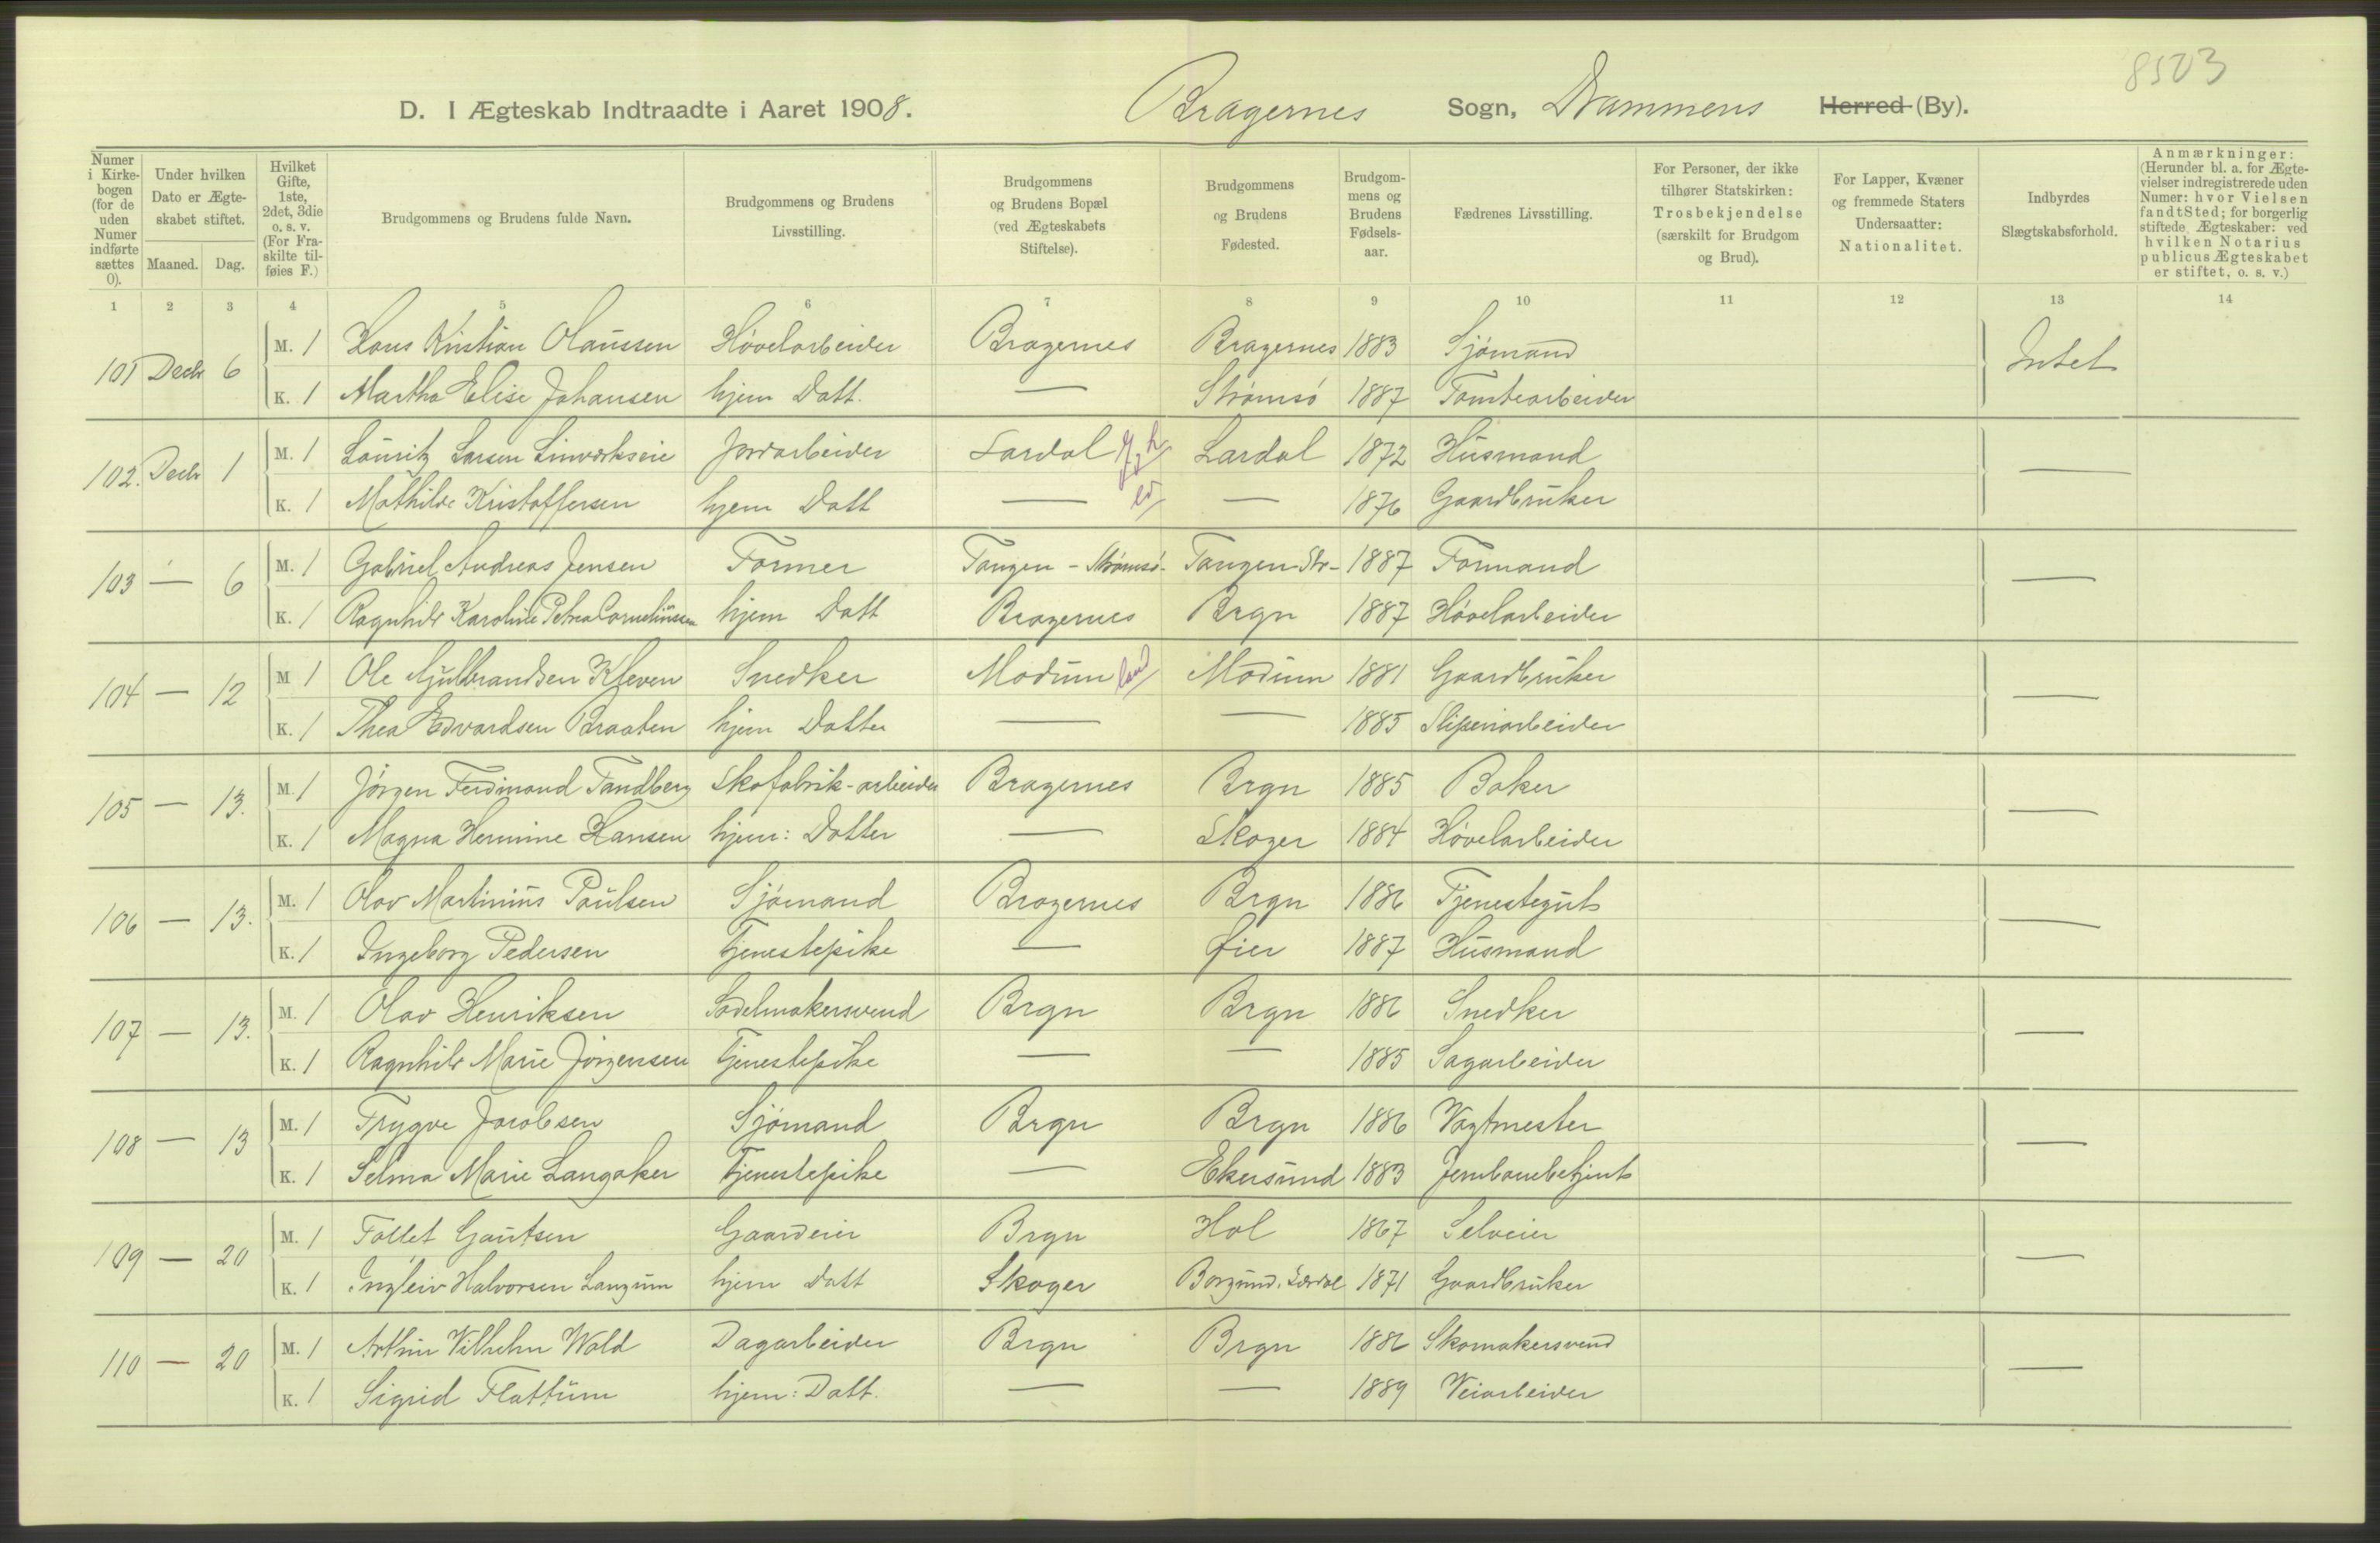 8503
D. I Ægteskab Indtraadte i Aaret 1908. Bragernes Sogn, Drammens Herred (By).
Numer i Kirkebogen (for de uden Numer indførte sættes 0).
Under hvilken Dato er Ægteskabet stiftet.
Maaned. Dag.
Hvilket Gifte, 1ste, 2det, 3die o. s. v. (For Fraskilte tilføies F.)
Brudgommens og Brudens fulde Navn.
Brudgommens og Brudens Livsstilling.
Brudgommens og Brudens Bopæl (ved Ægteskabets Stiftelse).
Brudgommens og Brudens Fødested.
Brudgommens og Brudens Fødselsaar.
Fædrenes Livsstilling.
For Personer, der ikke tilhører Statskirken: Trosbekjendelse (særskilt for Brudgom og Brud).
For Lapper, Kvæner og fremmede Staters Undersaatter: Nationalitet.
Indbyrdes Slægtskabsforhold.
Anmærkninger: (Herunder bl. a. for Ægtevielser indregistrerede uden Numer: hvor Vielsen fandt Sted; for borgerlig stiftede Ægteskaber: ved hvilken Notarius publicus Ægteskabet er stiftet, o. s. v.)
1 2 3 4 5 6 7 8 9 10 11 12 13 14
101 Decbr 6 M. 1 Hans Kristian Olaussen Høvelarbeider Bragernes Bragernes 1883 Sjømand Intet
K. 1 Martha Elise Johansen hjem Datt. — Strømsø 1887 Tomtearbeider
102. Decbr 1 M. 1 Lauritz Larsen Jordarbeider Lardal Lardal 1872 Husmand —
K. 1 Mathilde Kristoffersen hjem Datt — — 1876 Gaardbruker
103 — 6 M. 1 Gabriel Andreas Jensen Former Tangen - Strømsø - Tangen-Str- 1887 Formand —
K. 1 Ragnhild Karoline Petrea Corneliussen hjem Datt Bragernes Brgn 1887 Høvelarbeider
104 — 12 M 1 Ole Gulbrandsen Kleven Snedker Modum land Modum 1881 Gaardbruker —
K. 1 Thea Edvardsen Braaten hjem Datter — — 1885 Sliperiarbeider
105 — 13. M. 1 Jørgen Ferdinand Tandberg Skofabrik-arbeider Bragernes Brgn 1885 Baker —
K. 1 Magna Hermine Hansen hjem: Datter — Skoger 1884 Høvelarbeider
106 — 13. M. 1 Olav Martinius Paulsen Sjømand Bragernes Brgn 1886 Tjenestegut —
K. 1 Ingeborg Pedersen Tjenestepike — Øier 1887 Husmand
107 — 13. M. 1 Olav Henriksen Sadelmakersvend Brgn Brgn 1886 Snedker —
K. 1 Ragnhild Marie Jørgensen Tjenestepike — — 1885 Sagarbeider
108 — 13 M. 1 Trygve Jacobsen Sjømand Brgn Brgn 1886 Vagtmester —
K. 1 Selma Marie Langaker Tjenestepike — Ekersund 1883 Jernbanebetjent
109 — 20 M. 1 Tollet Gautsen Gaardeier Brgn Hol 1867 Selveier —
K. 1 Ingleiv Halvorsen Langum hjem Datt Skoger Borgund, Lærdal 1871 Gaardbruker
110 — 20 M. 1 Arthur Vilhelm Wold Dagarbeider Brgn Brgn 1886 Skomakersvend —
K. 1 Sigrid Flattum hjem: Datt. — — 1889 Veiarbeider